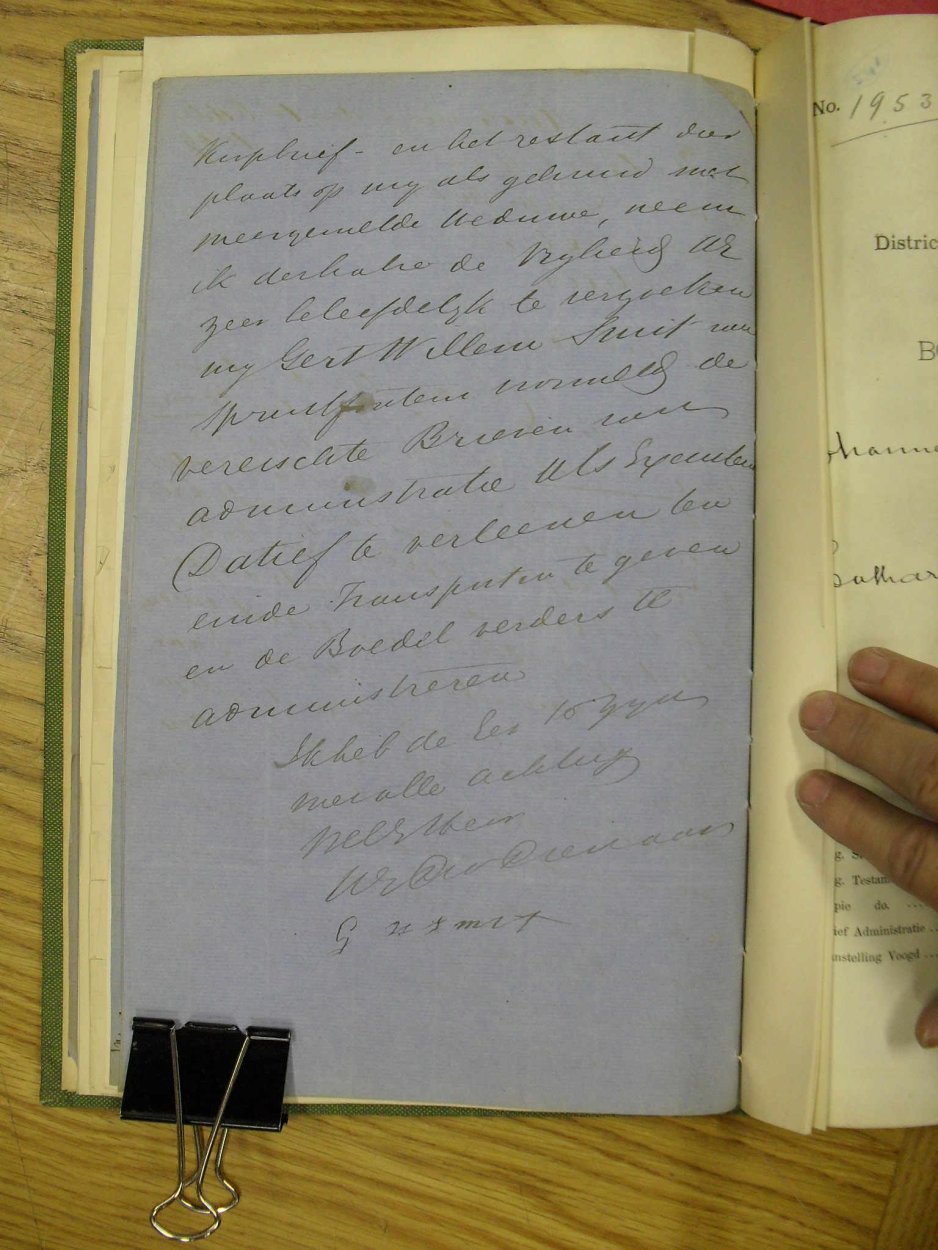 Koopbrief - en het restant dier
plaats op my als gehuwd met
meergemelde Weduwe, neem
ik derhalve de Vryheid UE
zeer beleefdelyk te verzoeken
my Gert Willem Smit van
Spruitfontein voormeld de
vereischte Brieven van
administratie Als Executeur
Datief te verleenen ten
einde Transporten te geven
en de Boedel verders te
administreren
Ik heb de Eer te zyn
met alle achting
WelE Heer
UE Dw Dienaar
G W Smit
No. 1953
Distric
Bo
g. Testam
pie do. ...
ief Administratie ..
nstelling Voogd ...